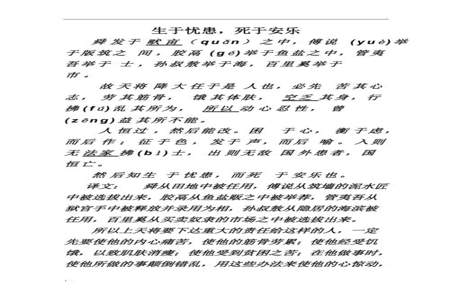 生于忧患，死于安乐
舜发于畎亩（quǎn）之中，傅说 (yuè)举
于版筑之 间，胶鬲 (gé)举于鱼盐之中，管夷
吾举于 士，孙叔敖举于海，百里奚举于
市。
故天将降大任于是人也，必先 苦其心
志，劳其筋骨， 饿其体肤， 空乏其身，行
拂(fú)乱其所为， 所以动心忍性，曾
(zēng)益其所不能。
人恒过，然后能改。困 于心， 衡于虑，
而后作；征于色， 发于声，而后 喻。入则
无法家拂(bì)士， 出则无敌 国外患者，国
恒亡。
然后知生 于忧患，而死 于安乐也。
译文： 舜从田地中被任用，傅说从筑墙的泥水匠
中被选拔出来，胶鬲从鱼盐贩之中被举荐，管夷吾从
狱官手中被释放并录用为相，孙叔敖从隐居的海滨被
任用，百里奚从买卖奴隶的市场之中被选拔出来。
所以上天将要下达重大的责任给这样的人，一定
先要使他的内心痛苦，使他的筋骨劳累；使他经受饥
饿，以致肌肤消瘦；使他受到贫困之苦；在他做事时，
使他所做的事颠倒错乱，用这些办法来使他的心惊动，